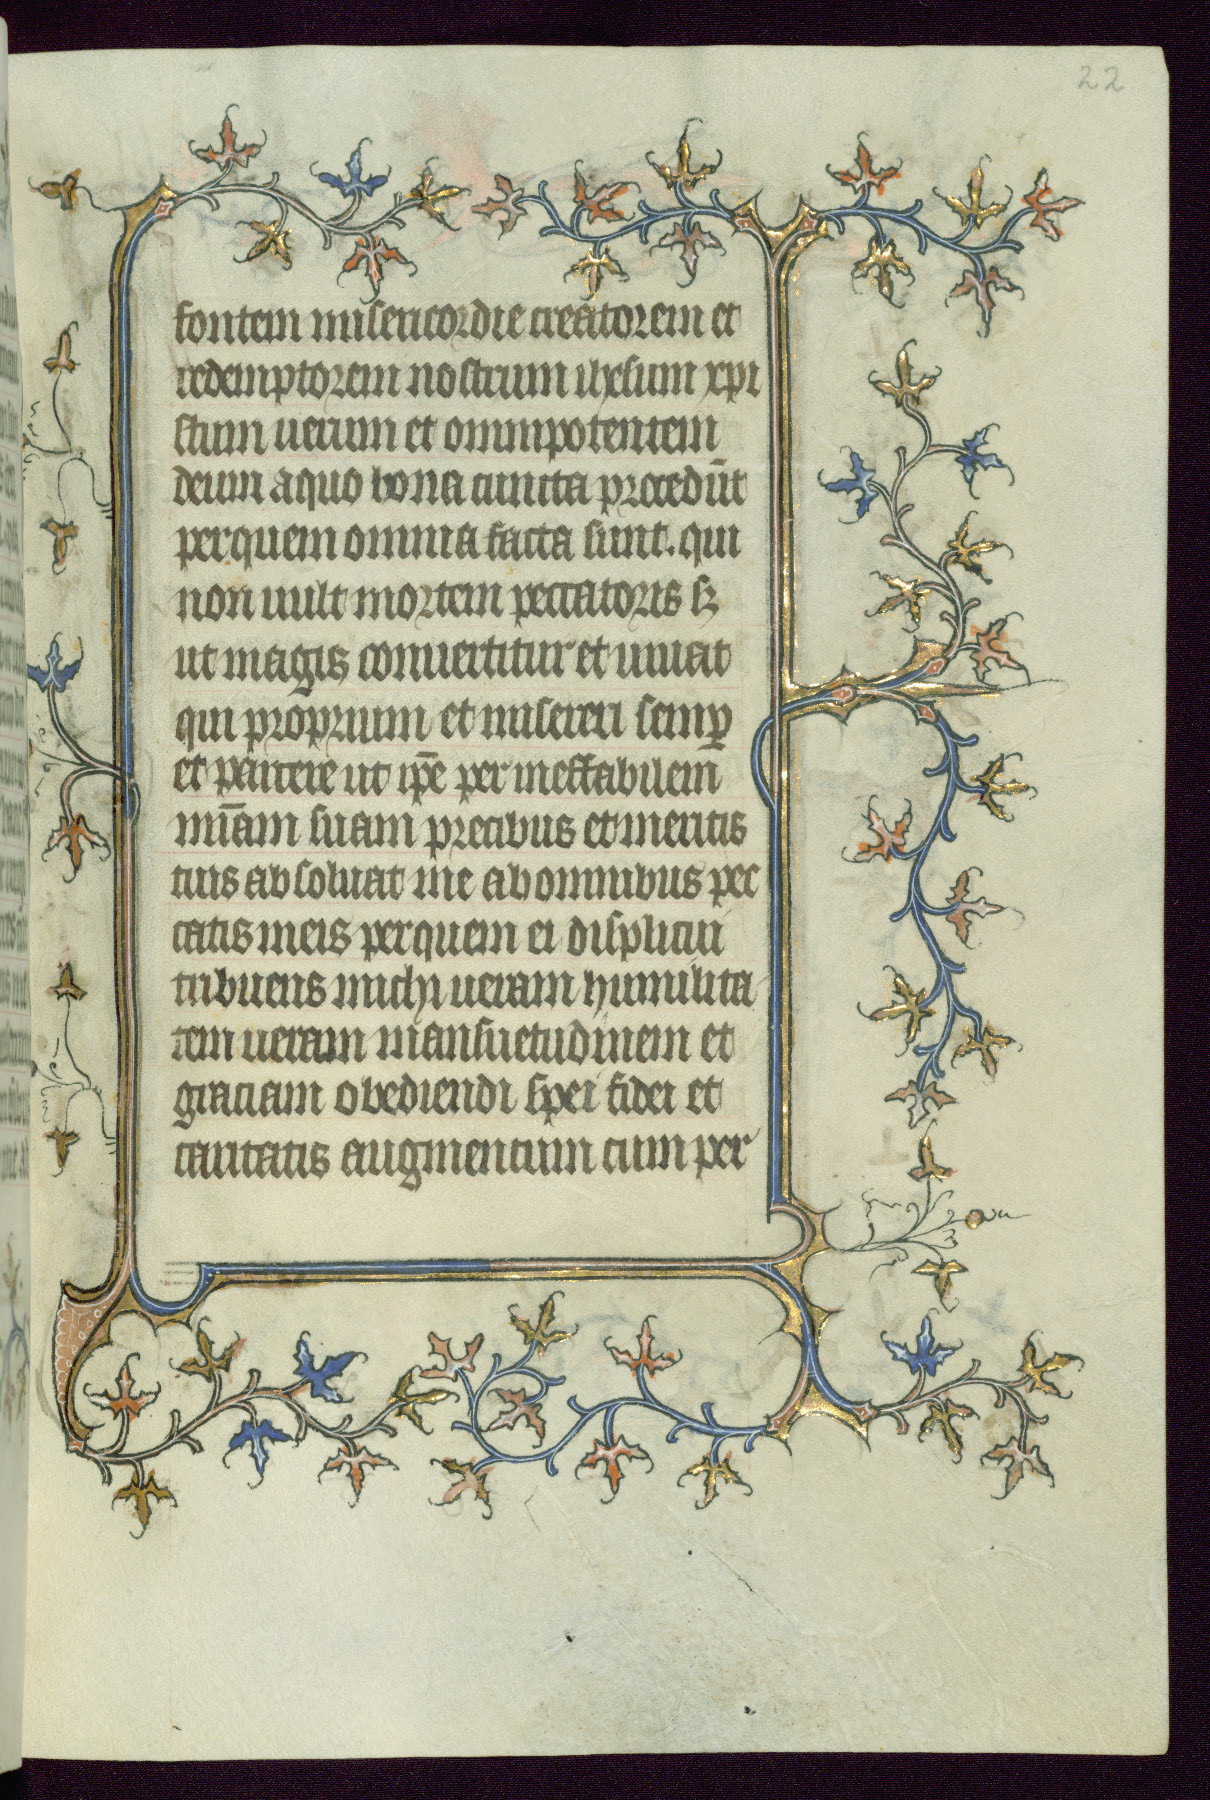 22
fontem misericordie creatorem et
redemptorem nostrum ihesum xpi
stum uerum et omnipotentem
deum a quo bona cuncta procedūt
per quem omnia facta sunt. qui
non uult mortem peccatoris sꝫ
ut magis conuertitur et uiuat
qui proprium et misereri semꝑ
et parcere ut ip̄e per ineffabilem
mīam suam precibus et meritis
tuis absoluat me ab omnibus pec
catis meis per quem ei displicui
tribuens michi ueram humilita
tem ueram mansuetudinem et
graciam obediendi spei fidei et
caritatis augmentum cum per